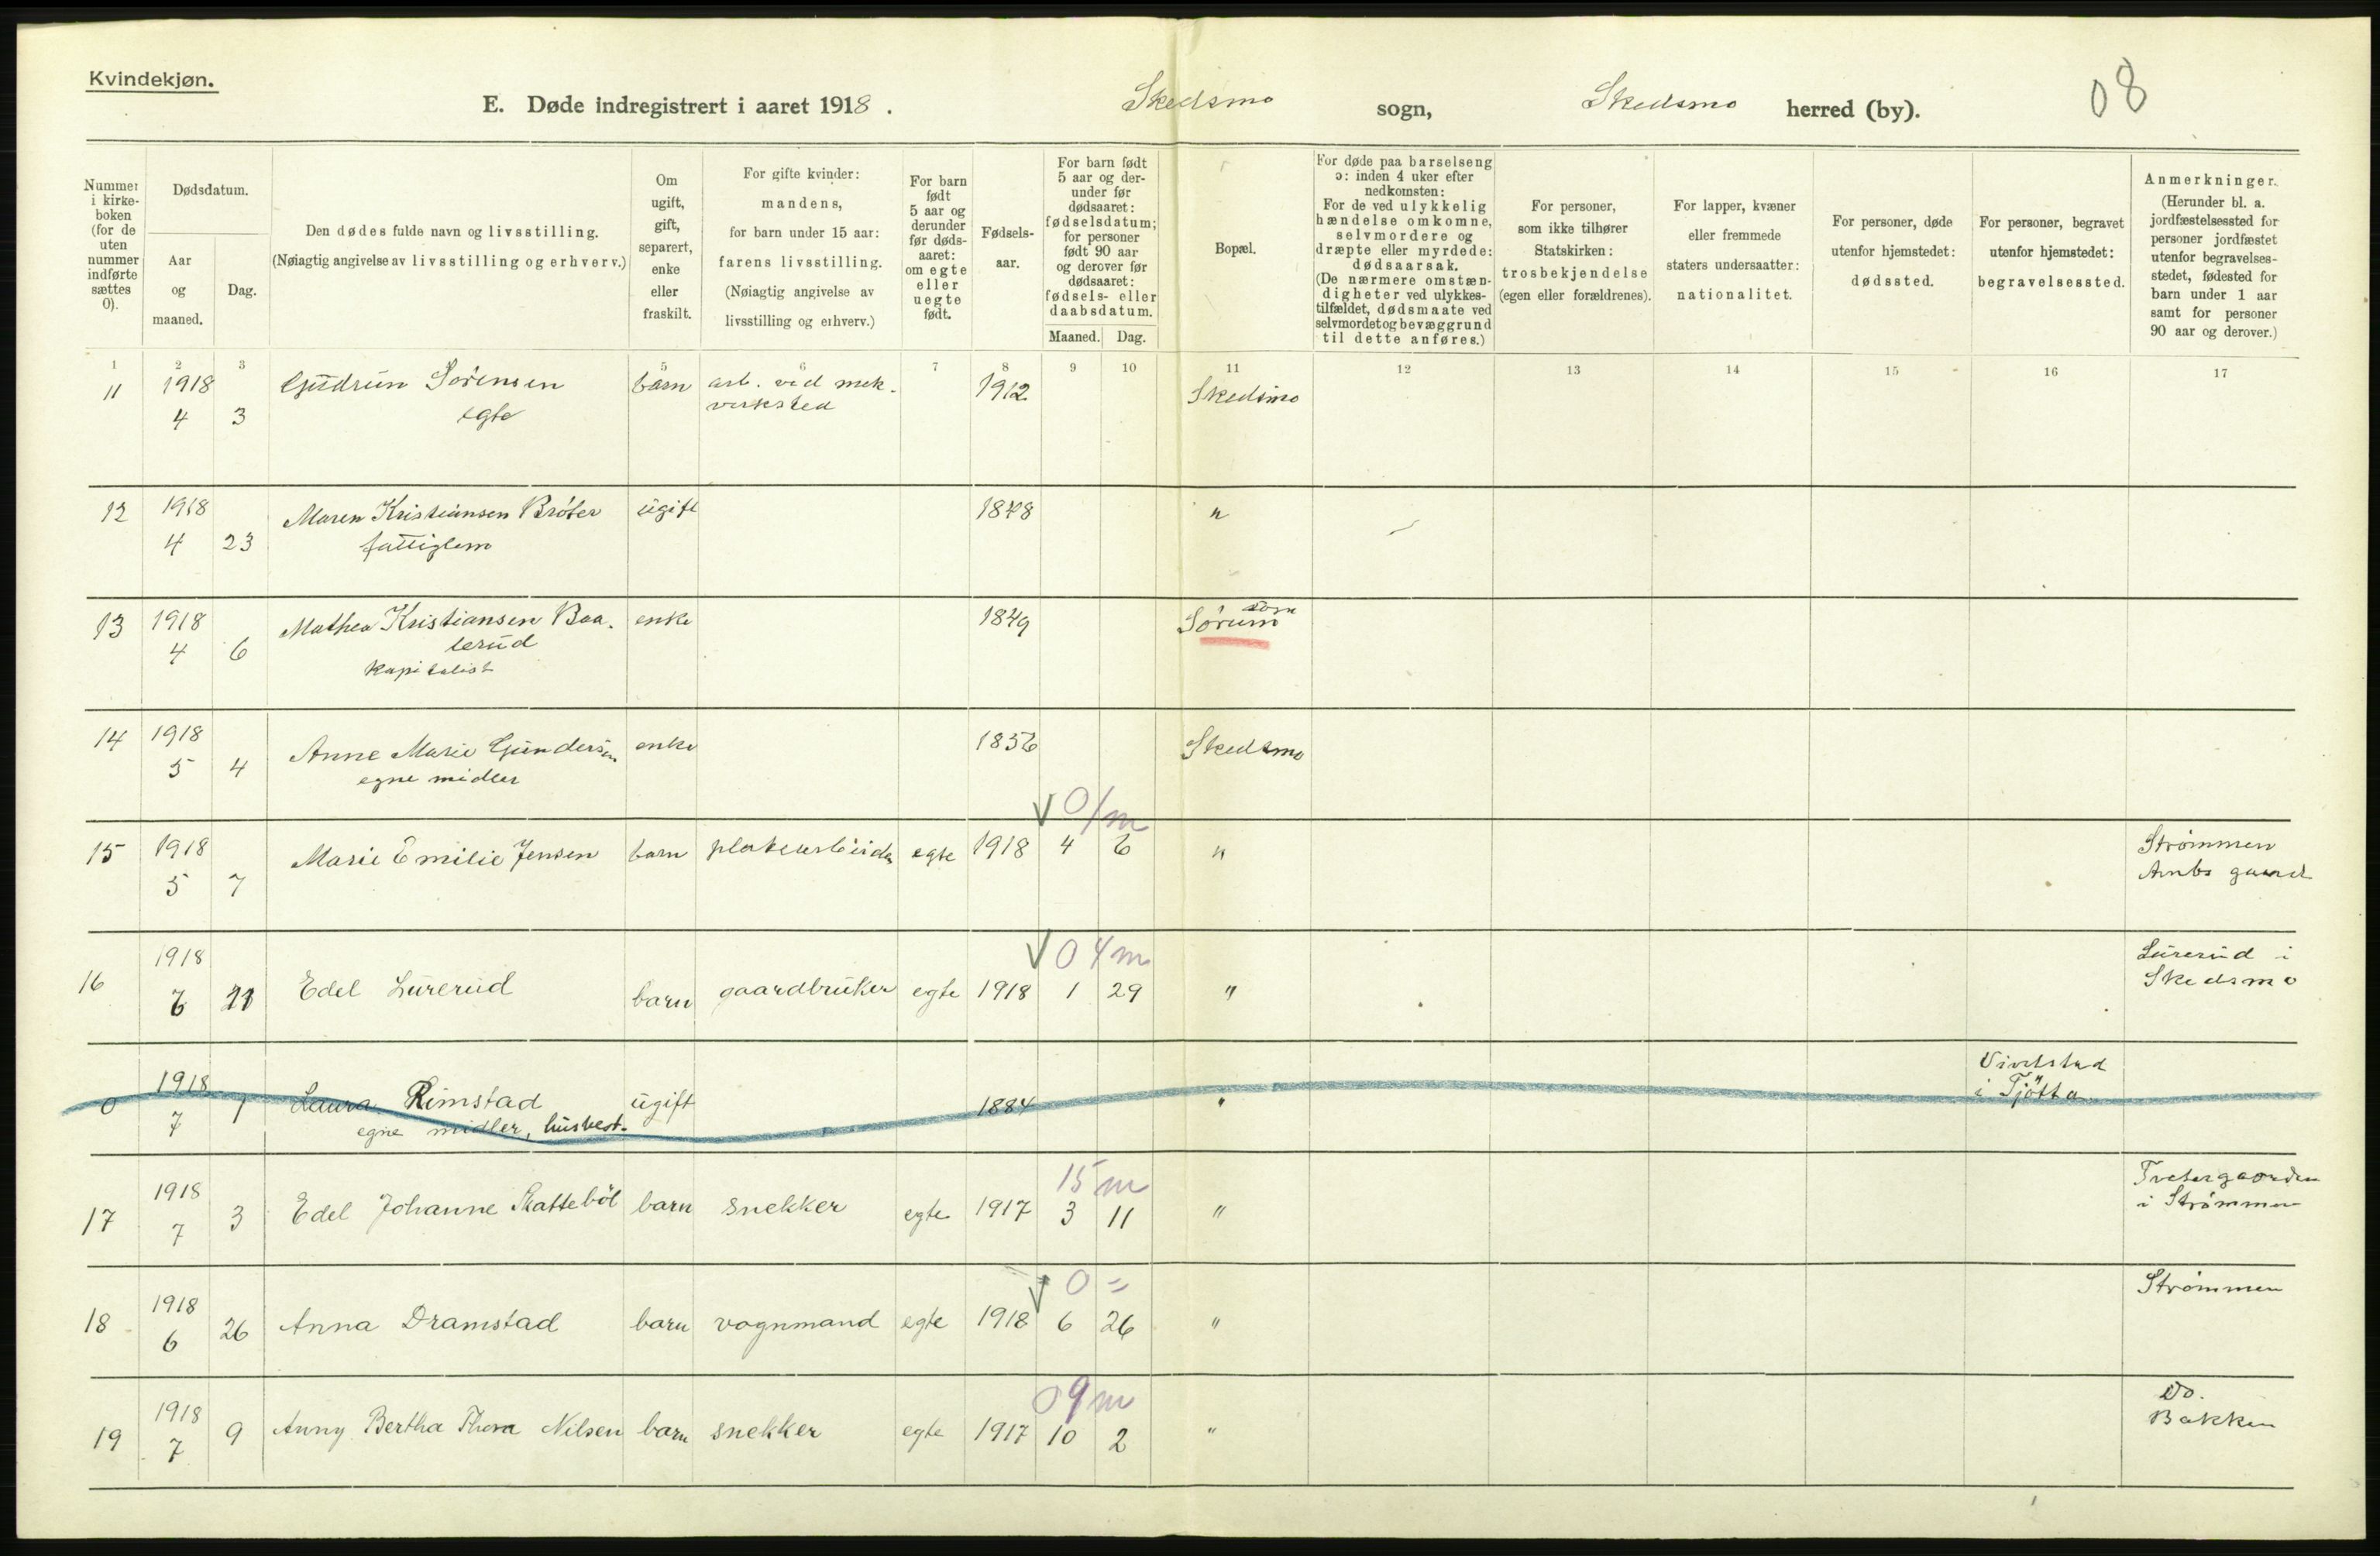 Kvindekjøn.
E. Døde indregistrert i aaret 1918. Skedsmo sogn, Skedsmo herred (by).
08
Nummer i kirke-boken (for de uten nummer indførte sættes 0).
Dødsdatum.
Aar og maaned.
Dag.
Den dødes fulde navn og livsstilling.
(Nøiagtig angivelse av livsstilling og erhverv.)
Om ugift, gift, separert, enke eller fraskilt.
For gifte kvinder: mandens, for barn under 15 aar: farens livsstilling. (Nøiagtig angivelse av livsstilling og erhverv.)
For barn født 5 aar og derunder før døds-aaret: om egte eller uegte født.
Fødsels-aar.
For barn født 5 aar og der-under før dødsaaret: fødselsdatum; for personer født 90 aar og derover før dødsaaret: fødsels- eller daabsdatum.
Maaned. Dag.
Bopæl.
For døde paa barselseng ɔ: inden 4 uker efter nedkomsten: For de ved ulykkelig hændelse omkomne, selvmordere og dræpte eller myrdede: dødsaarsak. (De nærmere omstæn-digheter ved ulykkes-tilfældet, dødsmaate ved selvmordet og bevæggrund til dette anføres.)
For personer, som ikke tilhører Statskirken: trosbekjendelse (egen eller forældrenes).
For lapper, kvæner eller fremmede staters undersaatter: nationalitet.
For personer, døde utenfor hjemstedet: dødssted.
For personer, begravet utenfor hjemstedet: begravelsessted.
Anmerkninger. (Herunder bl. a. jordfæstelsessted for personer jordfæstet utenfor begravelses-stedet, fødested for barn under 1 aar samt for personer 90 aar og derover.)
1 2 3 5 6 7 8 9 10 11 12 13 14 15 16 17
11 1918 Gudrun Sørensen barn arb. ved mek. 1912 Skedsmo
4 3 egte verksted
12 1918 Maren Kristiansen Bråter ugift 1848 "
4 23 fattiglem
13 1918 Mathea Kristiansen Baa- enke 1849 Sørum
4 6 lerud
kapitalist
14 1918 Anne Marie Gundersen enke 1856 Skedsmo
5 4 egne midler
0/m
15 1918 Marie Emilie Jensen barn egte 1918 4 6 " Strømmen
5 7
0 4m
16 1918 Edel Lurerud barn gaardbruker egte 1918 1 29 " Lurerud i
6 21 Skedsmo
0 1918 Laura Rimstad ugift 1884 "
7 1 egne midler, husbest. i Tjøtta
15m
17 1918 Edel Johanne Skattebøl barn snekker egte 1917 3 11 " Tvetergaarden
7 3 i Strømmen
0 =
18 1918 Anna Dramstad barn vognmand egte 1918 6 26 " Strømmen
6 26
09m
19 1918 Anny Bertha Thora Nilsen barn snekker egte 1917 10 2 " Do.
7 9 Bakken